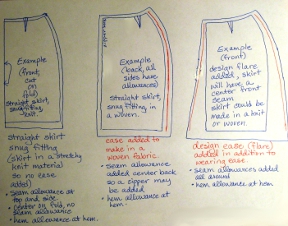 Example
(front,
cut
on
fold)
straight skirt,
snug fitting
knit.
straight skirt
snug fitting
(skirt in a stretchy
knit material)
so no ease
added)
• seam allowance at
top and side.
• center on fold, no
seam allowance
• hem allowance at hem.
Example
(back, all
sides have
allowances)
straight skirt,
snug fitting in
a woven.
ease added to
make in a
woven fabric.
• seam allowance
added center back
so a zipper may
be added
• hem allowance at
hem.
Example
(front)
design flare
added, skirt
will have a
center front
seam
skirt could be
made in a knit
or woven.
design ease (flare)
added in addition to
wearing ease.
• seam allowances added
all around
• hem allowance at hem.